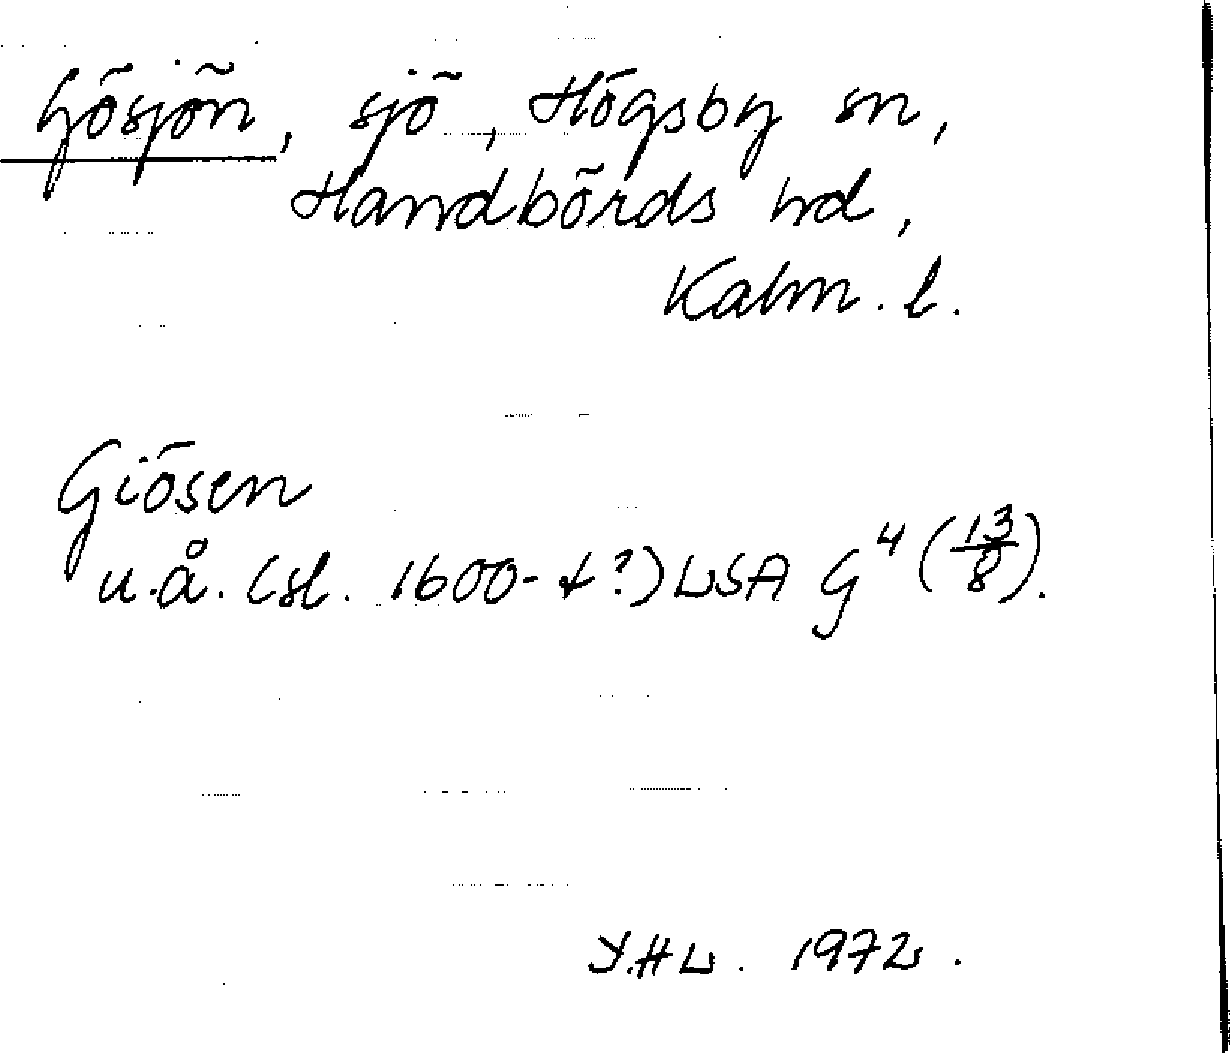 Gösjön, sjö, Högsby sn,
Handbörds hd,
Kalm. l.
Giösen
u.å. (sl. 1600-t?) LSA G⁴ (13/8).
Y.HL. 1972.